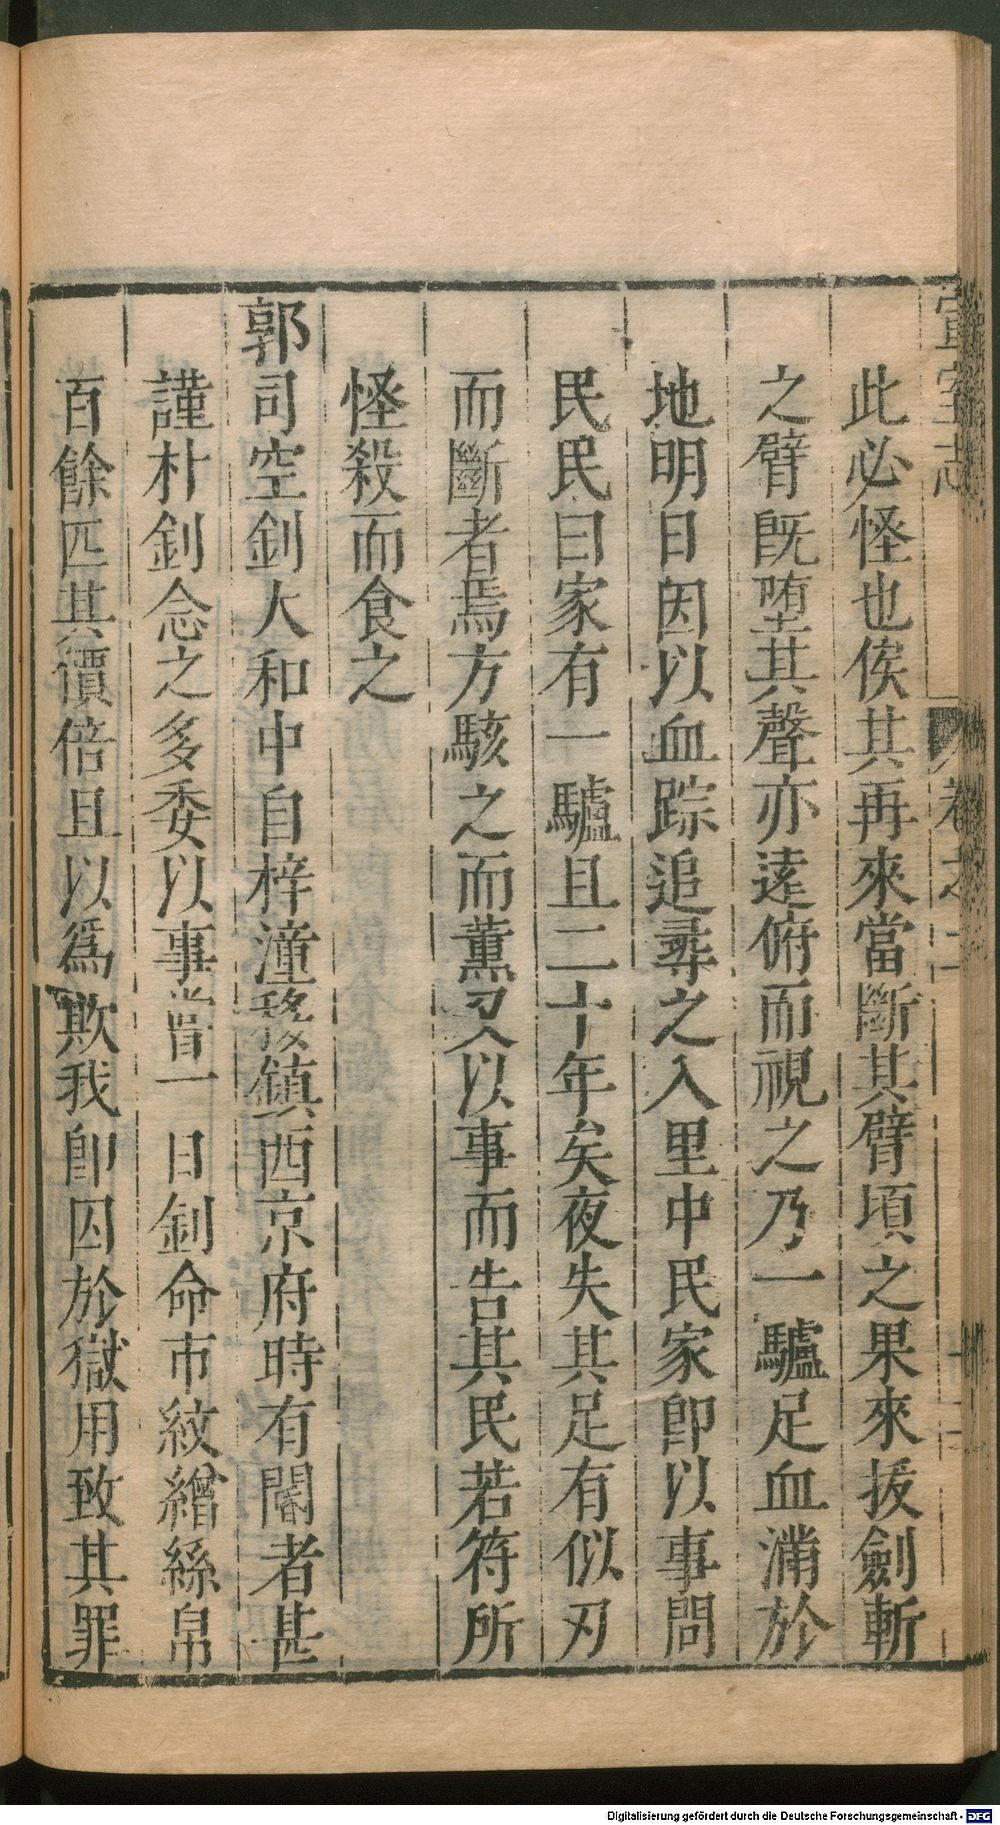 宣室志 卷之二
此必怪也俟其再來當斷其臂頃之果來拔劍斬
之臂既墮其聲亦遠俯而視之乃一驢足血滿於
地明日因以血踪追尋之入里中民家卽以事問
民民曰家有一驢且二十年矣夜失其足有似刃
而斷者焉方駭之而薰又以事而告其民若符所
怪殺而食之
郭司空釗大和中自梓潼移鎮西京府時有閽者甚
謹朴釗念之多委以事常一日釗命市紋繒絲帛
百餘匹其價倍且以爲欺我卽囚於獄用致其罪
Digitalisierung gefördert durch die Deutsche Forschungsgemeinschaft - DFG